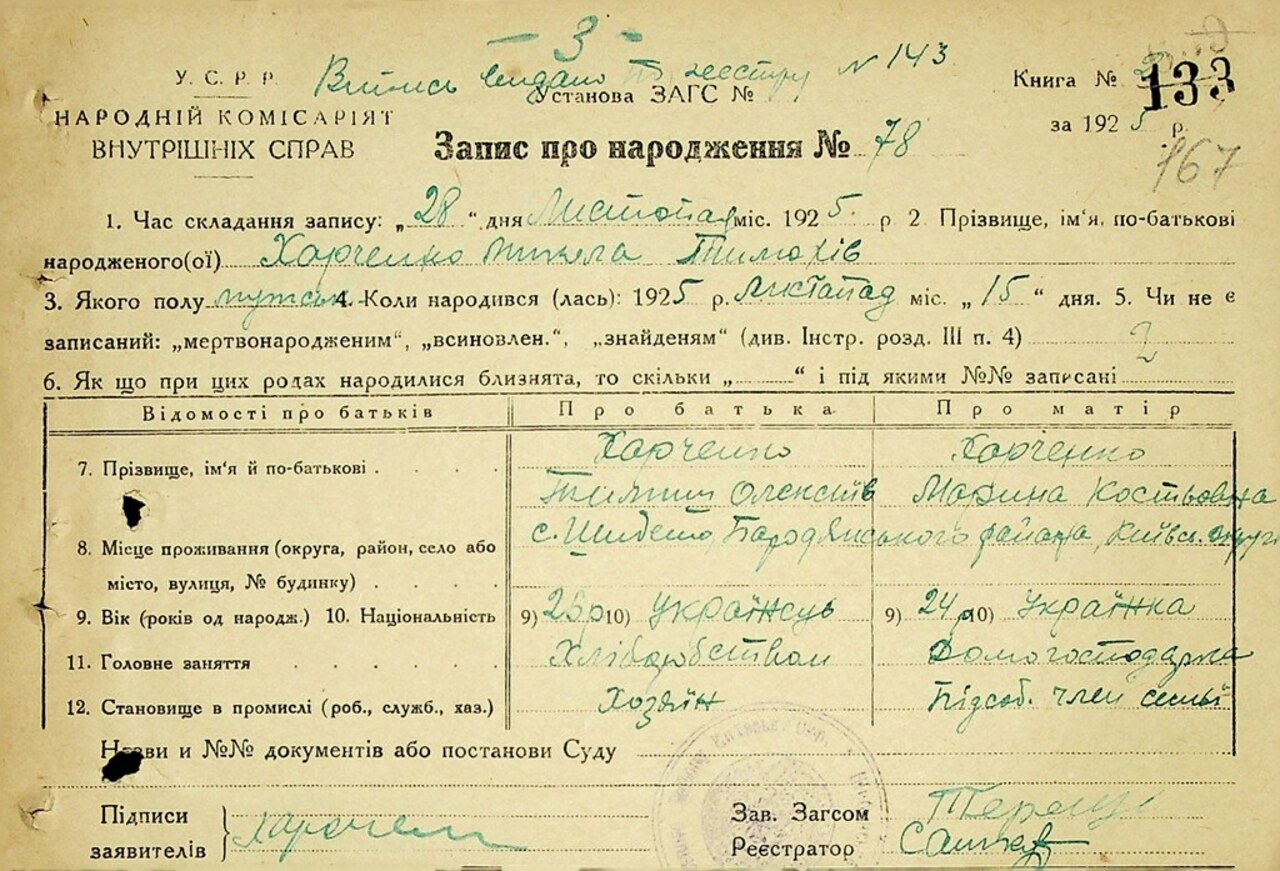 - 3 -
У. С. Р. Р. Витись видано по реестру N 143 Книга №
Установа ЗАГС № 133
НАРОДНІЙ КОМІСАРІЯТ за 1925 р.
ВНУТРІШНІХ СПРАВ Запис про народження № 78
167
1. Час складання запису: „28“ дня Листопад міс. 1925. р 2. Прізвище, ім'я, по-батькові
народженого(ої) Харченко Микола Тимохів
3. Якого полу мужськ. 4. Коли народився (лась): 1925 р. Листапад міс. „15“ дня. 5. Чи не є
записаний: „мертвонародженим“, „всиновлен.“, „знайденям“ (див. Інстр. розд. III п. 4)
6. Як що при цих родах народилися близнята, то скільки „ “ і під якими №№ записані
Відомості про батьків Про батька Про матір
7. Прізвище, ім'я й по-батькові . . . . Харченко Харченко
Олексіїв Марина Костьовна
8. Місце проживання (округа, район, село або с. Бародянського района, Київс. округи
місто, вулиця, № будинку) . . . .
9. Вік (років од народж.) 10. Національність 9) 26р 10) Українець 9) 24р 10) Українка
11. Головне заняття . . . . . Хліборобством Домогосподарка
12. Становище в промислі (роб., служб., хаз.) Хозяїн Підсоб. член семьї
Назви и №№ документів або постанови Суду
Підписи Зав. Загсом
заявителів Харчен Реєстратор